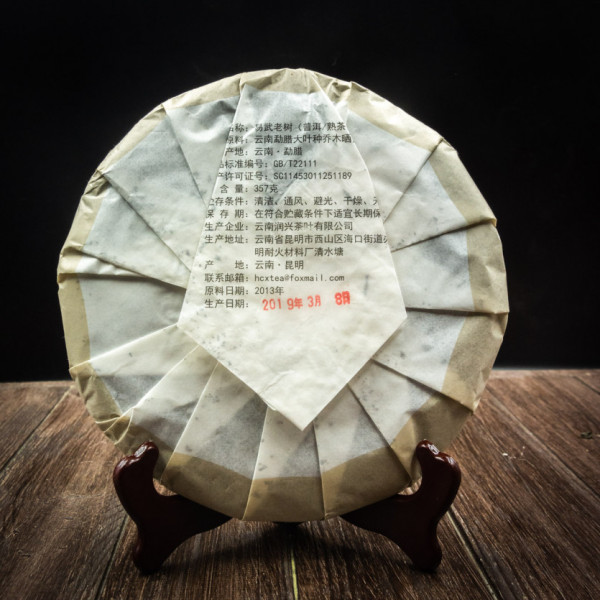 名称：易武老树（普洱/熟茶
原料：云南勐腊大叶种乔木晒
产地：云南·勐腊
品标准编号：GB/T22111
产许可证号：SC11453011251189
含 量：357克
贮存条件：清洁、通风、避光、干燥、无
保 存 期：在符合贮藏条件下适宜长期保
生产企业：云南润兴茶叶有限公司
生产地址：云南省昆明市西山区海口街道
明耐火材料厂清水塘
产 地：云南·昆明
联系邮箱：hcxtea@foxmail.com
原料日期：2013年
生产日期：2019年3月